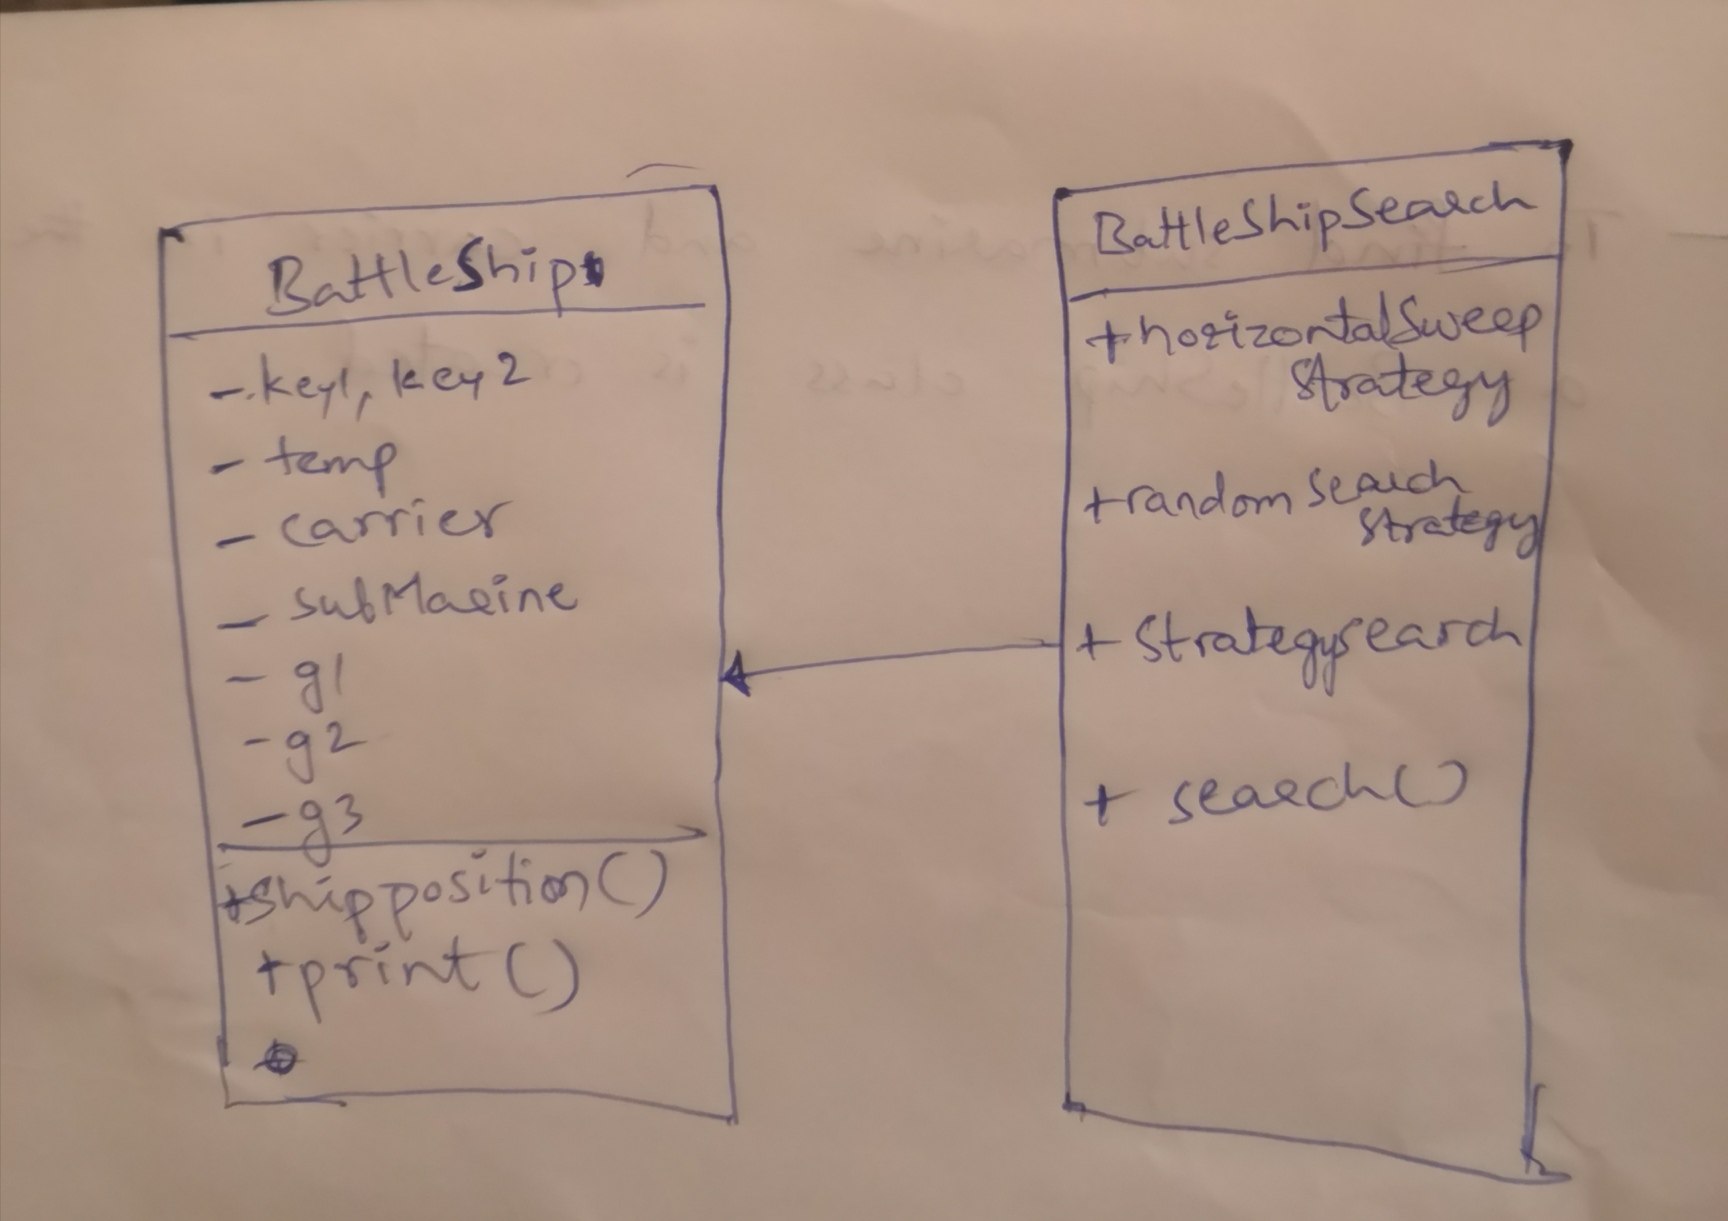 BattleShip
- key1, key2
- temp
- carrier
- subMarine
- g1
- g2
- g3
+shipposition()
+print()
BattleShipSearch
+horizontalSweep
Strategy
+random Search
Strategy
+ Strategysearch
+ search()